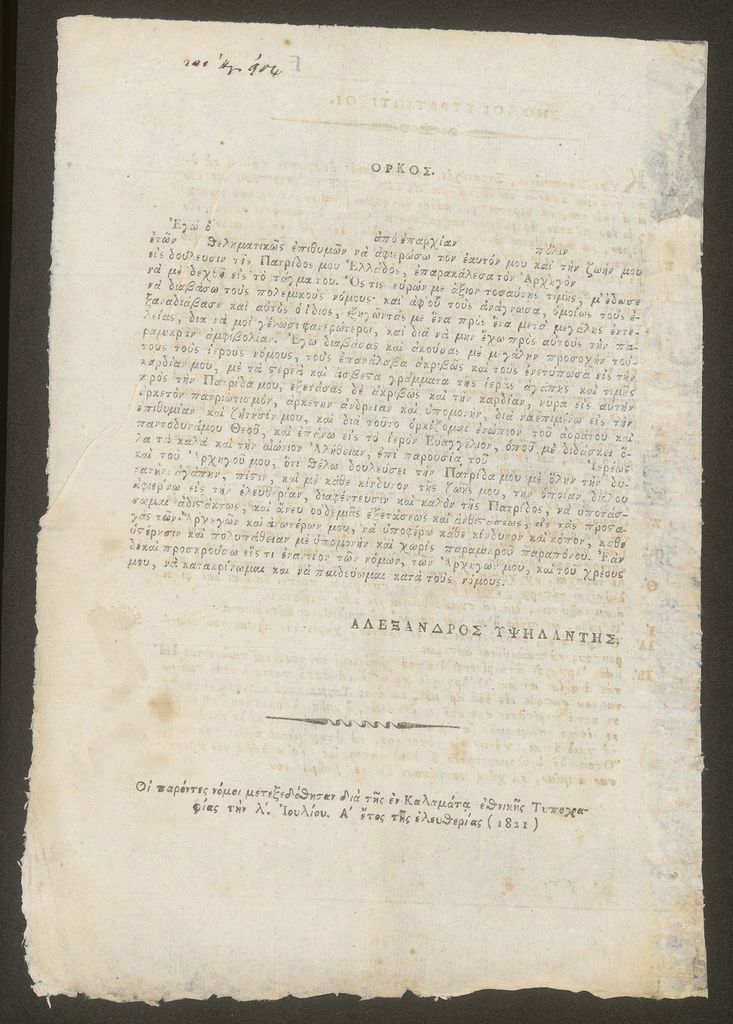 ΟΡΚΟΣ.
Ἐγὼ ὁ ἀπὸ ἐπαρχίαν πόλιν
ἐτῶν θεληματικῶς ἐπιθυμῶν νὰ ἀφιερώσω τὸν ἑαυτόν μου καὶ τὴν ζωήν μου
εἰς δούλευσιν τῆς Πατρίδος μου Ἑλλάδος, ἐπαρακάλεσα τὸν Ἀρχηγὸν
νὰ μὲ δεχθῇ εἰς τὸ τάγμα του. Ὅς τις εὑρών με ἄξιον τοσαύτης τιμῆς, μ' ἔδωσε
νὰ διαβάσω τοὺς πολεμικοὺς νόμους· καὶ ἀφ' οὗ τοὺς ἀνάγνωσα, ὁμοίως τοὺς ἐ-
ξαναδιάβασε καὶ αὐτὸς ὁ ἴδιος, ἐξηγῶντάς με ἕνα πρὸς ἕνα μετὰ μεγάλης ἐντε-
λείας, διὰ νὰ μοὶ γένωσι φανερώτεροι, καὶ διὰ νὰ μὴν ἔχω πρὸς αὐτοὺς τὴν πα-
ραμικρὰν ἀμφιβολίαν. Ἐγὼ διαβάσας καὶ ἀκούσας μὲ μεγάλην προσοχὴν τού-
τους τοὺς ἱεροὺς νόμους, τοὺς ἐπανάλαβα ἀκριβῶς καὶ τοὺς ἐνετύπωσα εἰς τὴν
καρδίαν μου, μὲ τὰ στερεὰ καὶ ἄσβεστα γράμματα τῆς ἱερᾶς ἀγάπης καὶ τιμῆς
πρὸς τὴν Πατρίδα μου, ἐξετάσας δὲ ἀκριβῶς καὶ τὴν καρδίαν, ηὗρα εἰς αὐτὴν
ἀρκετὸν πατριωτισμὸν, ἀρκετὴν ἀνδρείαν καὶ ὑπομονὴν, διὰ νὰ ἐπιμένω εἰς τὴν
ἐπιθυμίαν καὶ ζήτησίν μου, καὶ διὰ τοῦτο ὁρκίζομαι ἐνώπιον τοῦ ἀοράτου καὶ
παντοδυνάμου Θεοῦ, καὶ ἐπάνω εἰς τὸ ἱερὸν Εὐαγγέλιον, ὁποῦ μὲ διδάσκει ὅ-
λα τὰ καλὰ καὶ τὴν αἰώνιον Ἀλήθειαν, ἐπὶ παρουσίᾳ τοῦ Ἱερέως
καὶ τοῦ Ἀρχηγοῦ μου, ὅτι θέλω δουλεύσει τὴν Πατρίδα μου μὲ ὅλην τὴν δυ-
νατὴν ἀγάπην, πίστιν, καὶ μὲ κάθε κίνδυνον τῆς ζωῆς μου, τὴν ὁποίαν διόλου
ἀφιερώνω εἰς τὴν ἐλευθερίαν, διαφέντευσιν καὶ καλὸν τῆς Πατρίδος, νὰ ὑποτάσ-
σωμαι ἀδιστάκτως, καὶ ἄνευ οὐδεμιᾶς ἐξετάσεως καὶ ἀνθιστάσεως, εἰς τὰς προστα-
γὰς τῶν Ἀρχηγῶν καὶ ἀνωτέρων μου, νὰ ὑποφέρω κάθε κίνδυνον καὶ κόπον, κάθε
ὑστέρησιν καὶ πολυπάθειαν μὲ ὑπομονὴν καὶ χωρὶς παραμικροῦ παραπόνου. Ἐὰν
δὲ καὶ προσκρούσω εἰς τι ἐναντίον τῶν νόμων, τῶν Ἀρχηγῶν μου, καὶ τοῦ χρέους
μου, νὰ κατακρίνωμαι καὶ νὰ παιδεύωμαι κατὰ τοὺς νόμους.
ΑΛΕΞΑΝΔΡΟΣ ΥΨΗΛΑΝΤΗΣ.
Οἱ παρόντες νόμοι μετεξεδόθησαν διὰ τῆς ἐν Καλαμάτᾳ ἐθνικῆς Τυπογρα-
φίας τὴν λ'. Ἰουλίου. Α' ἔτος τῆς ἐλευθερίας (1821)